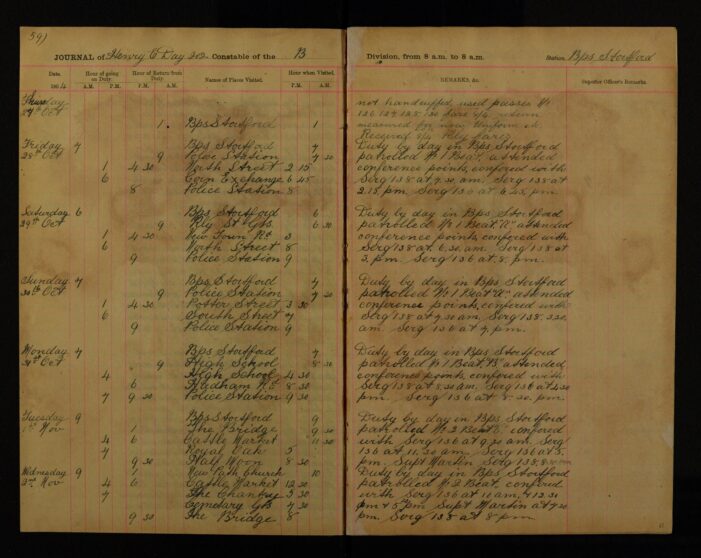 59)
JOURNAL of Henry C Day 202 Constable of the B
Date. Hour of going on Duty. Hour of Return from Duty. Names of Places Visited. Hour when Visited.
A.M. P.M. P.M. A.M. P.M. A.M.
Thursday
27th Oct
1. Bps Stortford 1
Friday 7 Bps Stortford 7
28th Oct 9 Police Station 7 30
1 4 30 North Street 2 15
6 Corn Exchange 6 45
8 Police Station 8
Saturday 6 Bps Stortford 6
29th Oct 9 6 30
1 4 30 New Town Rd 3
6 North Street 8
9 Police Station 9
Sunday 7 Bps Stortford 7
30th Oct 9 Police Station 7 30
1 4 30 Potter Street 3 30
6 South Street 7
9 Police Station 9
Monday 7 Bps Stortford 7
31st Oct 9 High School 8 30
4 High School 4 30
6 Hadham Rd 8 30
7 9 30 Police Station 9 30
Tuesday 9 Bps Stortford 9
1st Nov 1 The Bridge 9 30
4 6 Castle Market 11 30
7 Royal Oak 5
9 30 Half Moon 8 30
Wednesday 9 1 New Path Church 10
2nd Nov 4 6 Cattle Market 12 30
7 The Chantry 3 30
Cemetary 4 30
9 30 The Bridge 8
Division, from 8 a.m. to 8 a.m. Station, Bps Stortford
REMARKS, &c. Superior Officer's Remarks.
not handcuffed used passes
measured for new Uniform
Duty by day in Bps Stortford
patrolled No 1 Beat, attended
conference points, confered with
Serg 138 at 7.30 am. Serg 138 at
2.15 pm Serg 136 at 6.45. pm
Duty by day in Bps Stortford
patrolled No 1 Beat "A" attended
conference points, confered with
Serg 138 at 6.30 am. Serg 138 at
3. pm. Serg 136 at 8. pm.
Duty by day in Bps Stortford
patrolled No 1 Beat "A" attended
conference points, confered with
Serg 138 at 7.30 am. Serg 138. 3.30.
am Serg 136 at 7. pm.
Duty by day in Bps Stortford
patrolled No 1 Beat "B" attended
conference points, confered with
Serg 138 at 8.30 am. Serg 136 at 4.30
pm. Serg 136 at 8.30. pm.
Duty by day in Bps Stortford
patrolled No 2 Beat confered
with Serg 136 at 9.30 am. Serg
136 at 11.30 am. Serg 136 at 5.
pm. Supt Martin Serg 138. 8.30
Duty by day in Bps Stortford
patrolled No 2 Beat, confered
with Serg 136 at 10 am, & 12.30
pm & 5 pm Supt Martin at 4.30
pm. Serg 138 at 8 pm.